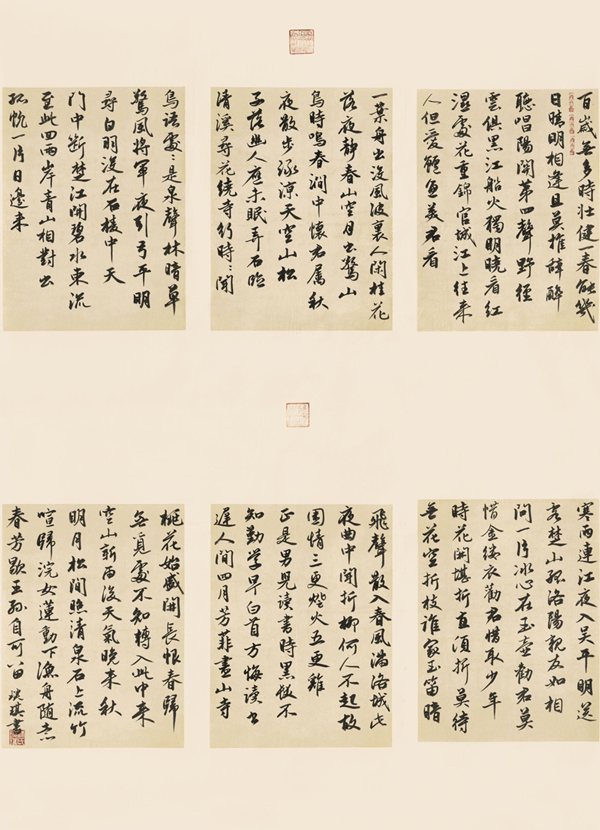 百歲無多時壯健一春能幾
日晴明相逢且莫推辭醉
聽唱陽關第四聲野徑
雲俱黑江船火獨明曉看紅
濕處花重錦官城江上往來
人但愛鱸魚美君看
一葉舟出沒風波裏人閑桂花
落夜靜春山空月出驚山
鳥時鳴春澗中懷君屬秋
夜散步詠涼天空山松
子落幽人應未眠弄石臨
清溪尋花繞寺行時々聞
鳥語處々是泉聲林暗草
驚風將軍夜引弓平明
尋白羽沒在石棱中天
門中斷楚江開碧水東流
至此回兩岸青山相對出
孤帆一片日邊來
寒雨連江夜入吳平明送
客楚山孤洛陽親友如相
問一片冰心在玉壺勸君莫
惜金縷衣勸君惜取少年
時花開堪折直須折莫待
無花空折枝誰家玉笛暗
飛聲散入春風滿洛城此
夜曲中聞折柳何人不起故
園情三更燈火五更雞
正是男兒讀書時黑髮不
知勤學早白首方悔讀書
遲人間四月芳菲盡山寺
桃花始盛開長恨春歸
無覓處不知轉入此中來
空山新雨後天氣晚來秋
明月松間照清泉石上流竹
喧歸浣女蓮動下漁舟隨意
春芳歇王孫自可留 琪書